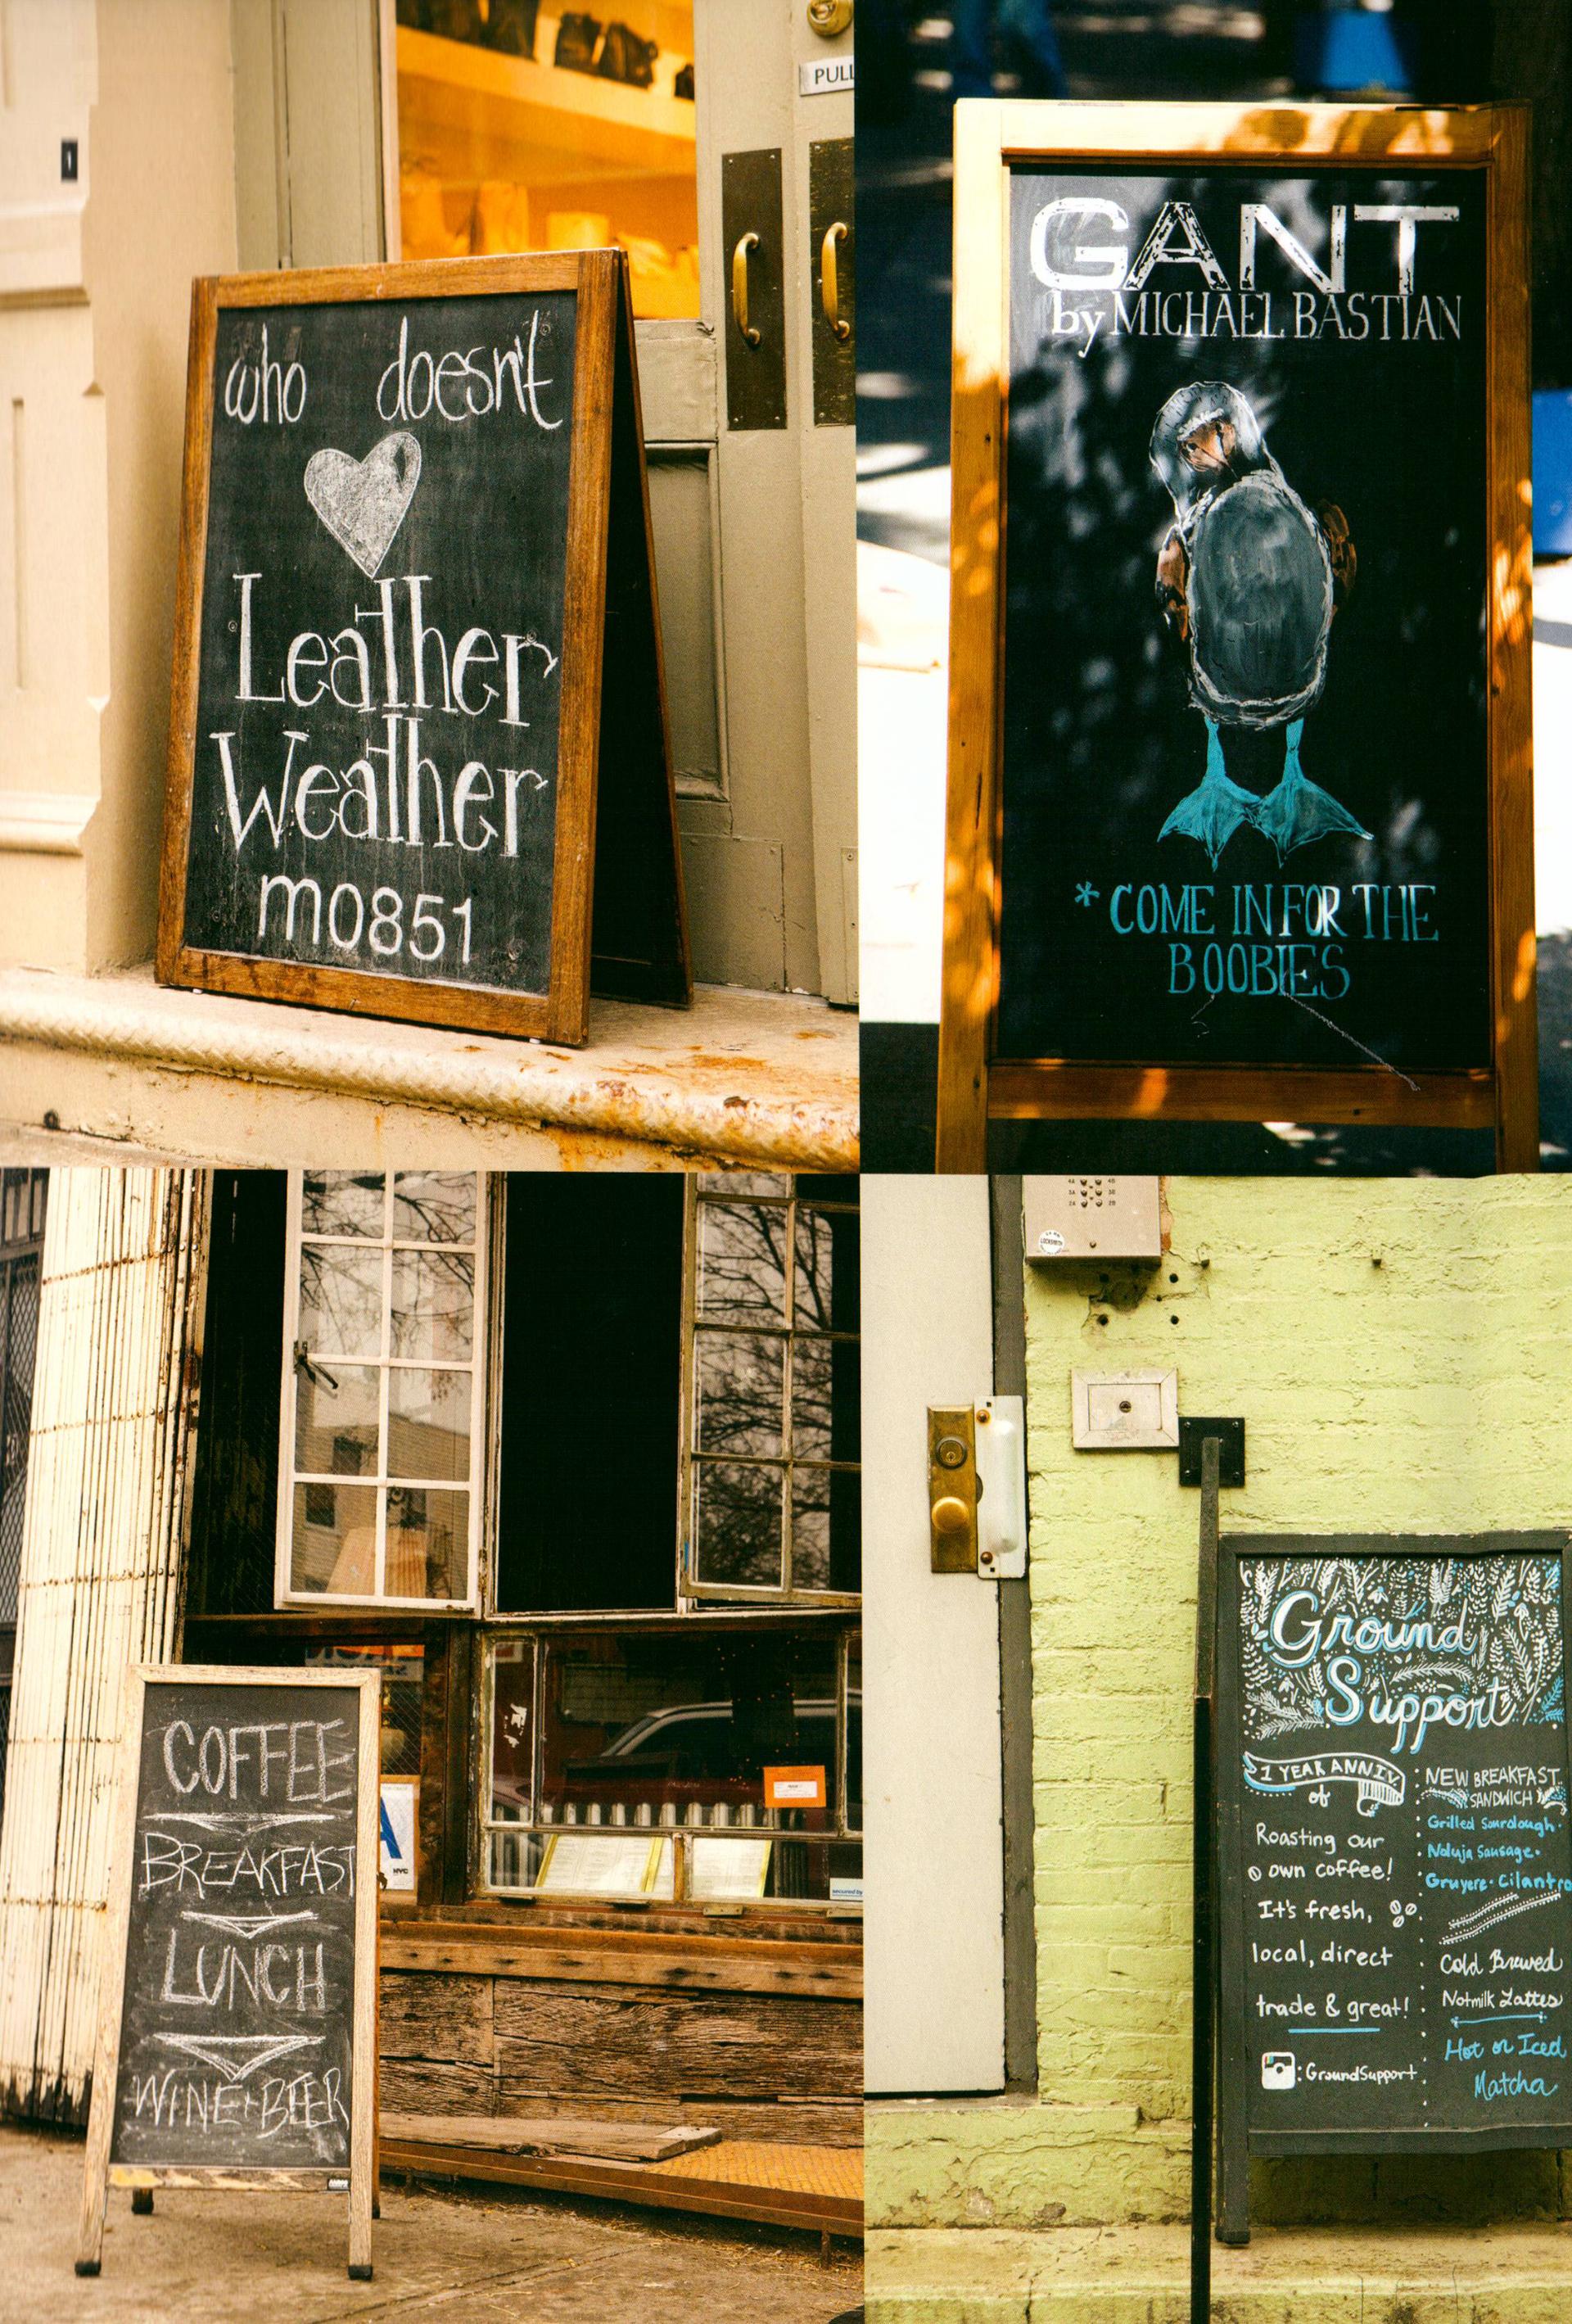 PULL
who doesn't
Leather
Weather
m0851
GANT
by MICHAEL BASTIAN
* COME IN FOR THE
BOOBIES
COFFEE
BREAKFAST
LUNCH
WINE+BEER
A
NYC
secured by
4A 4B
3A 3B
2A 2B
LOCKSMITH
Ground
Support
1 YEAR ANNIV.
of
Roasting our
own coffee!
It's fresh,
local, direct
trade & great!
: GroundSupport
NEW BREAKFAST
SANDWICH
Grilled Sourdough.
Noluja Sausage.
Gruyere. Cilantro
Cold Brewed
Notmilk Lattes
Hot or Iced
Matcha